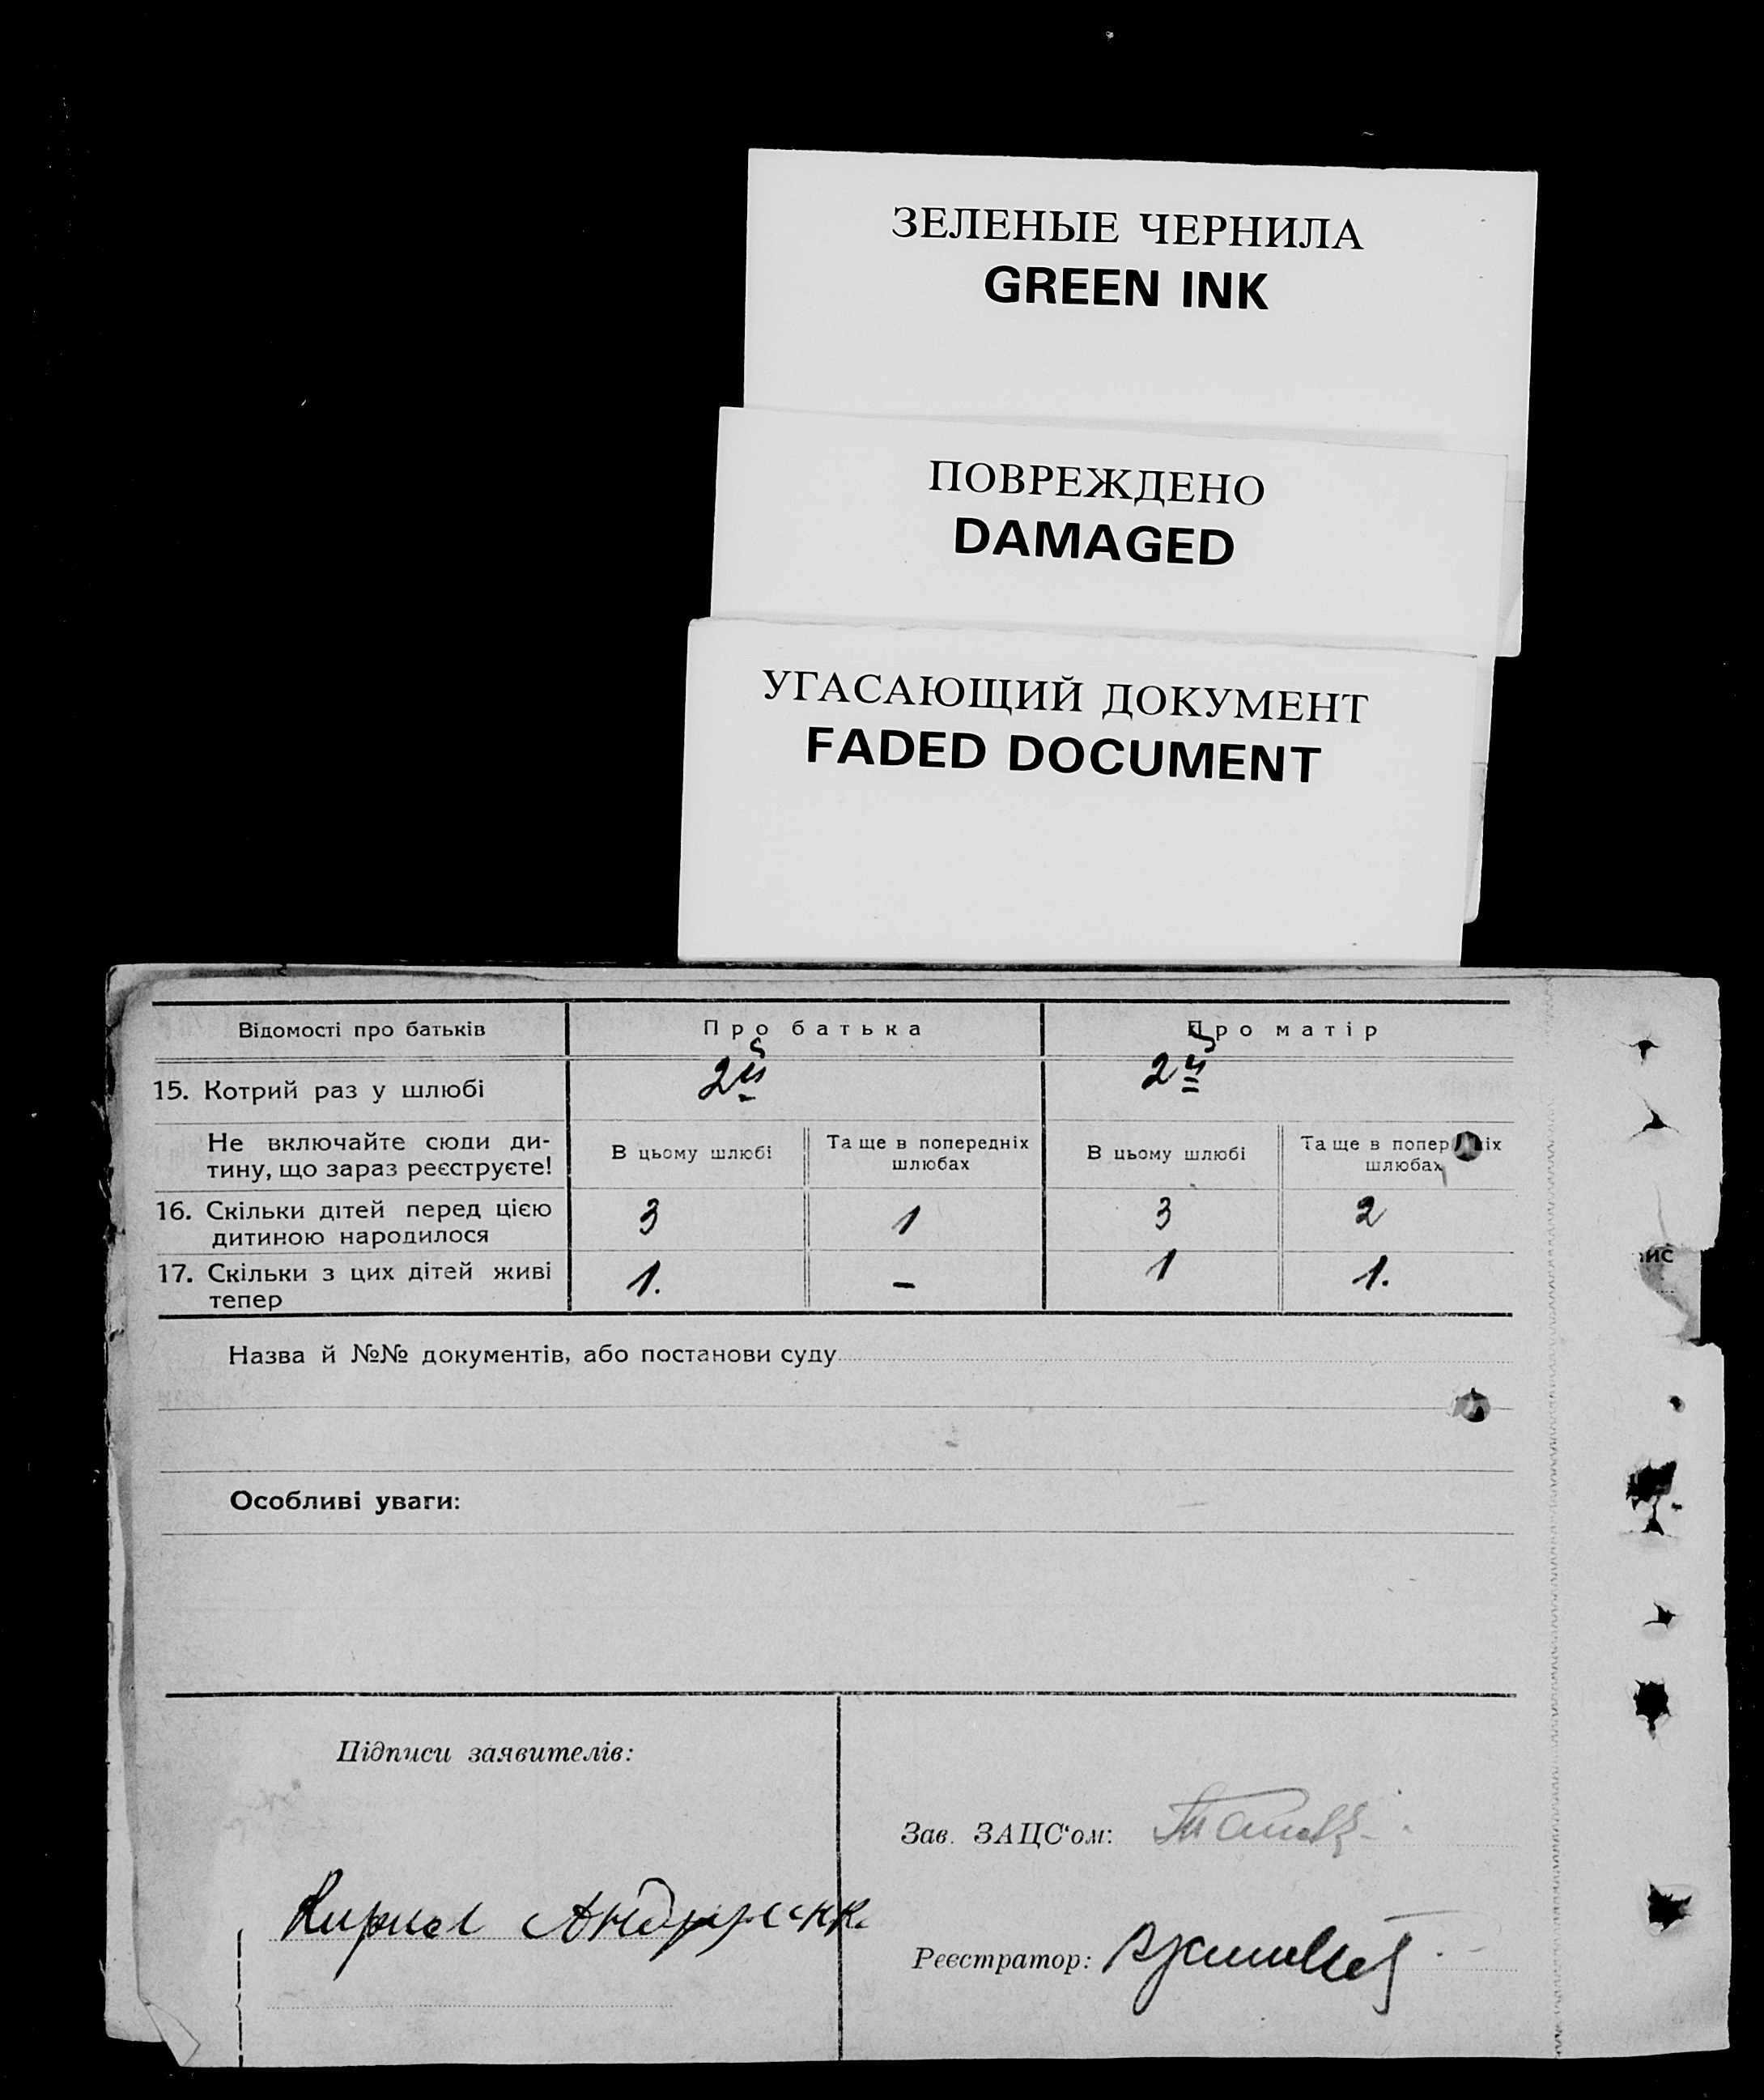 ЗЕЛЕНЫЕ ЧЕРНИЛА
GREEN INK
ПОВРЕЖДЕНО
DAMAGED
УГАСАЮЩИЙ ДОКУМЕНТ
FADED DOCUMENT
Відомості про батьків Про батька Про матір
15. Котрий раз у шлюбі 2й 2й
Не включайте сюди ди-
тину, що зараз реєструєте!
В цьому шлюбі
Та ще в попередніх
шлюбах
В цьому шлюбі
Та ще в попередніх
шлюбах
16. Скільки дітей перед цією
дитиною народилося
3 1 3 2
17. Скільки з цих дітей живі
тепер
1. – 1 1.
ис
Назва й №№ документів, або постанови суду
Особливі уваги:
Підписи заявителів:
Зав. ЗАЦС'ом:
Реєстратор: